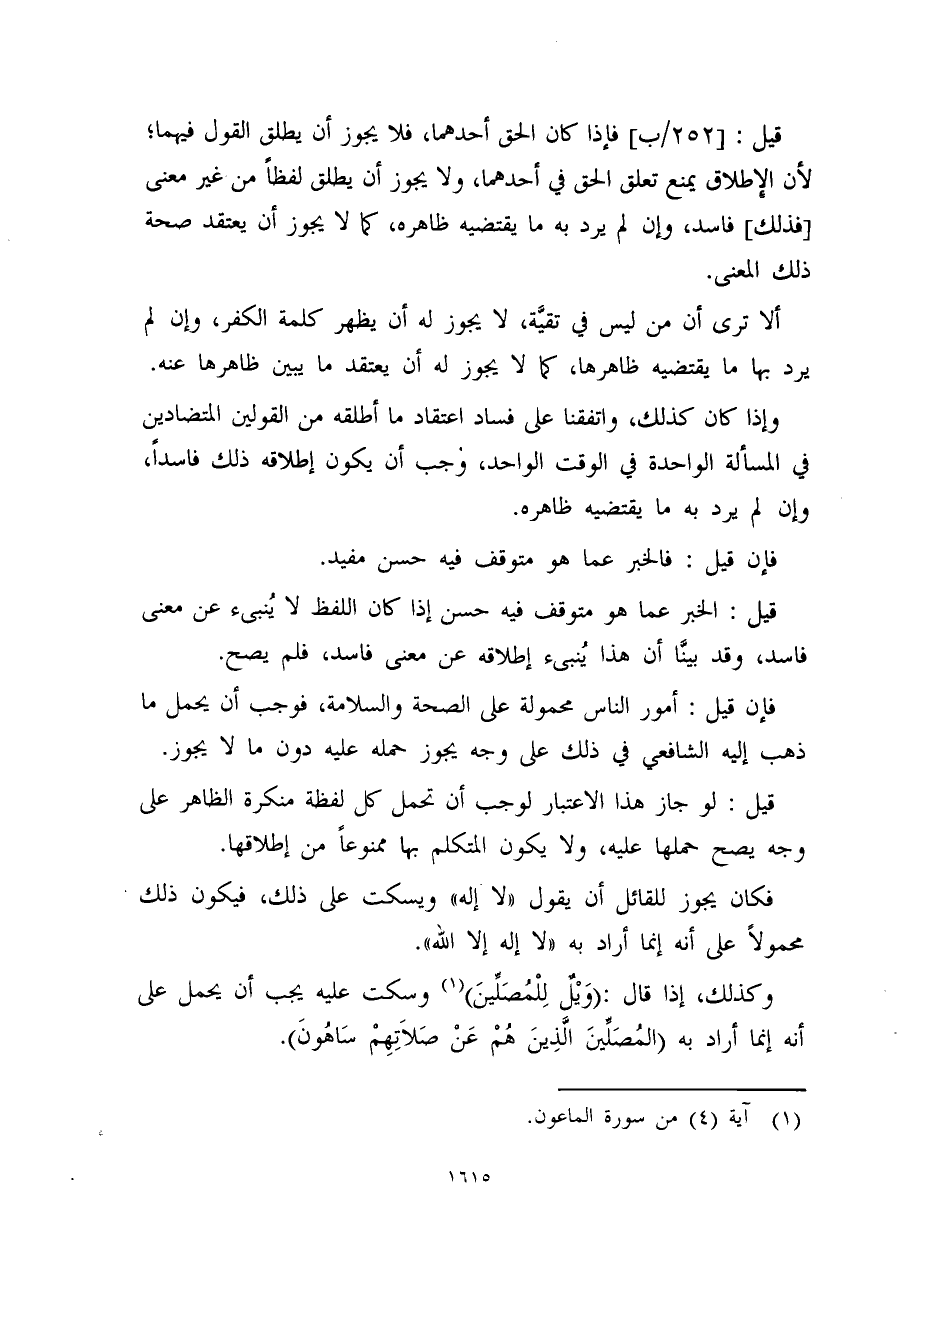 قيل : [٢٥٢/ب] فإذا كان الحق أحدهما، فلا يجوز أن يطلق القول فيهما؛
لأن الإطلاق يمنع تعلق الحق في أحدهما، ولا يجوز أن يطلق لفظاً من غير معنى
[فذلك] فاسد، وإن لم يرد به ما يقتضيه ظاهره، كما لا يجوز أن يعتقد صحة
ذلك المعنى.
ألا ترى أن من ليس في تقيَّة، لا يجوز له أن يظهر كلمة الكفر، وإن لم
يرد بها ما يقتضيه ظاهرها، كما لا يجوز له أن يعتقد ما يبين ظاهرها عنه.
وإذا كان كذلك، واتفقنا على فساد اعتقاد ما أطلقه من القولين المتضادين
في المسألة الواحدة في الوقت الواحد، وجب أن يكون إطلاقه ذلك فاسداً،
وإن لم يرد به ما يقتضيه ظاهره.
فإن قيل : فالخبر عما هو متوقف فيه حسن مفيد.
قيل : الخبر عما هو متوقف فيه حسن إذا كان اللفظ لا يُنبىء عن معنى
فاسد، وقد بينَّا أن هذا يُنبىء إطلاقه عن معنى فاسد، فلم يصح.
فإن قيل : أمور الناس محمولة على الصحة والسلامة، فوجب أن يحمل ما
ذهب إليه الشافعي في ذلك على وجه يجوز حمله عليه دون ما لا يجوز.
قيل : لو جاز هذا الاعتبار لوجب أن تحمل كل لفظة منكرة الظاهر على
وجه يصح حملها عليه، ولا يكون المتكلم بها ممنوعاً من إطلاقها.
فكان يجوز للقائل أن يقول «لا إله» ويسكت على ذلك، فيكون ذلك
محمولاً على أنه إنما أراد به «لا إله إلا الله».
وكذلك، إذا قال :(وَيْلٌ لِلْمُصَلِّينَ)(١) وسكت عليه يجب أن يحمل على
أنه إنما أراد به (المُصَلِّينَ الَّذِينَ هُمْ عَنْ صَلاَتِهِمْ سَاهُونَ).
(١) آية (٤) من سورة الماعون.
١٦١٥